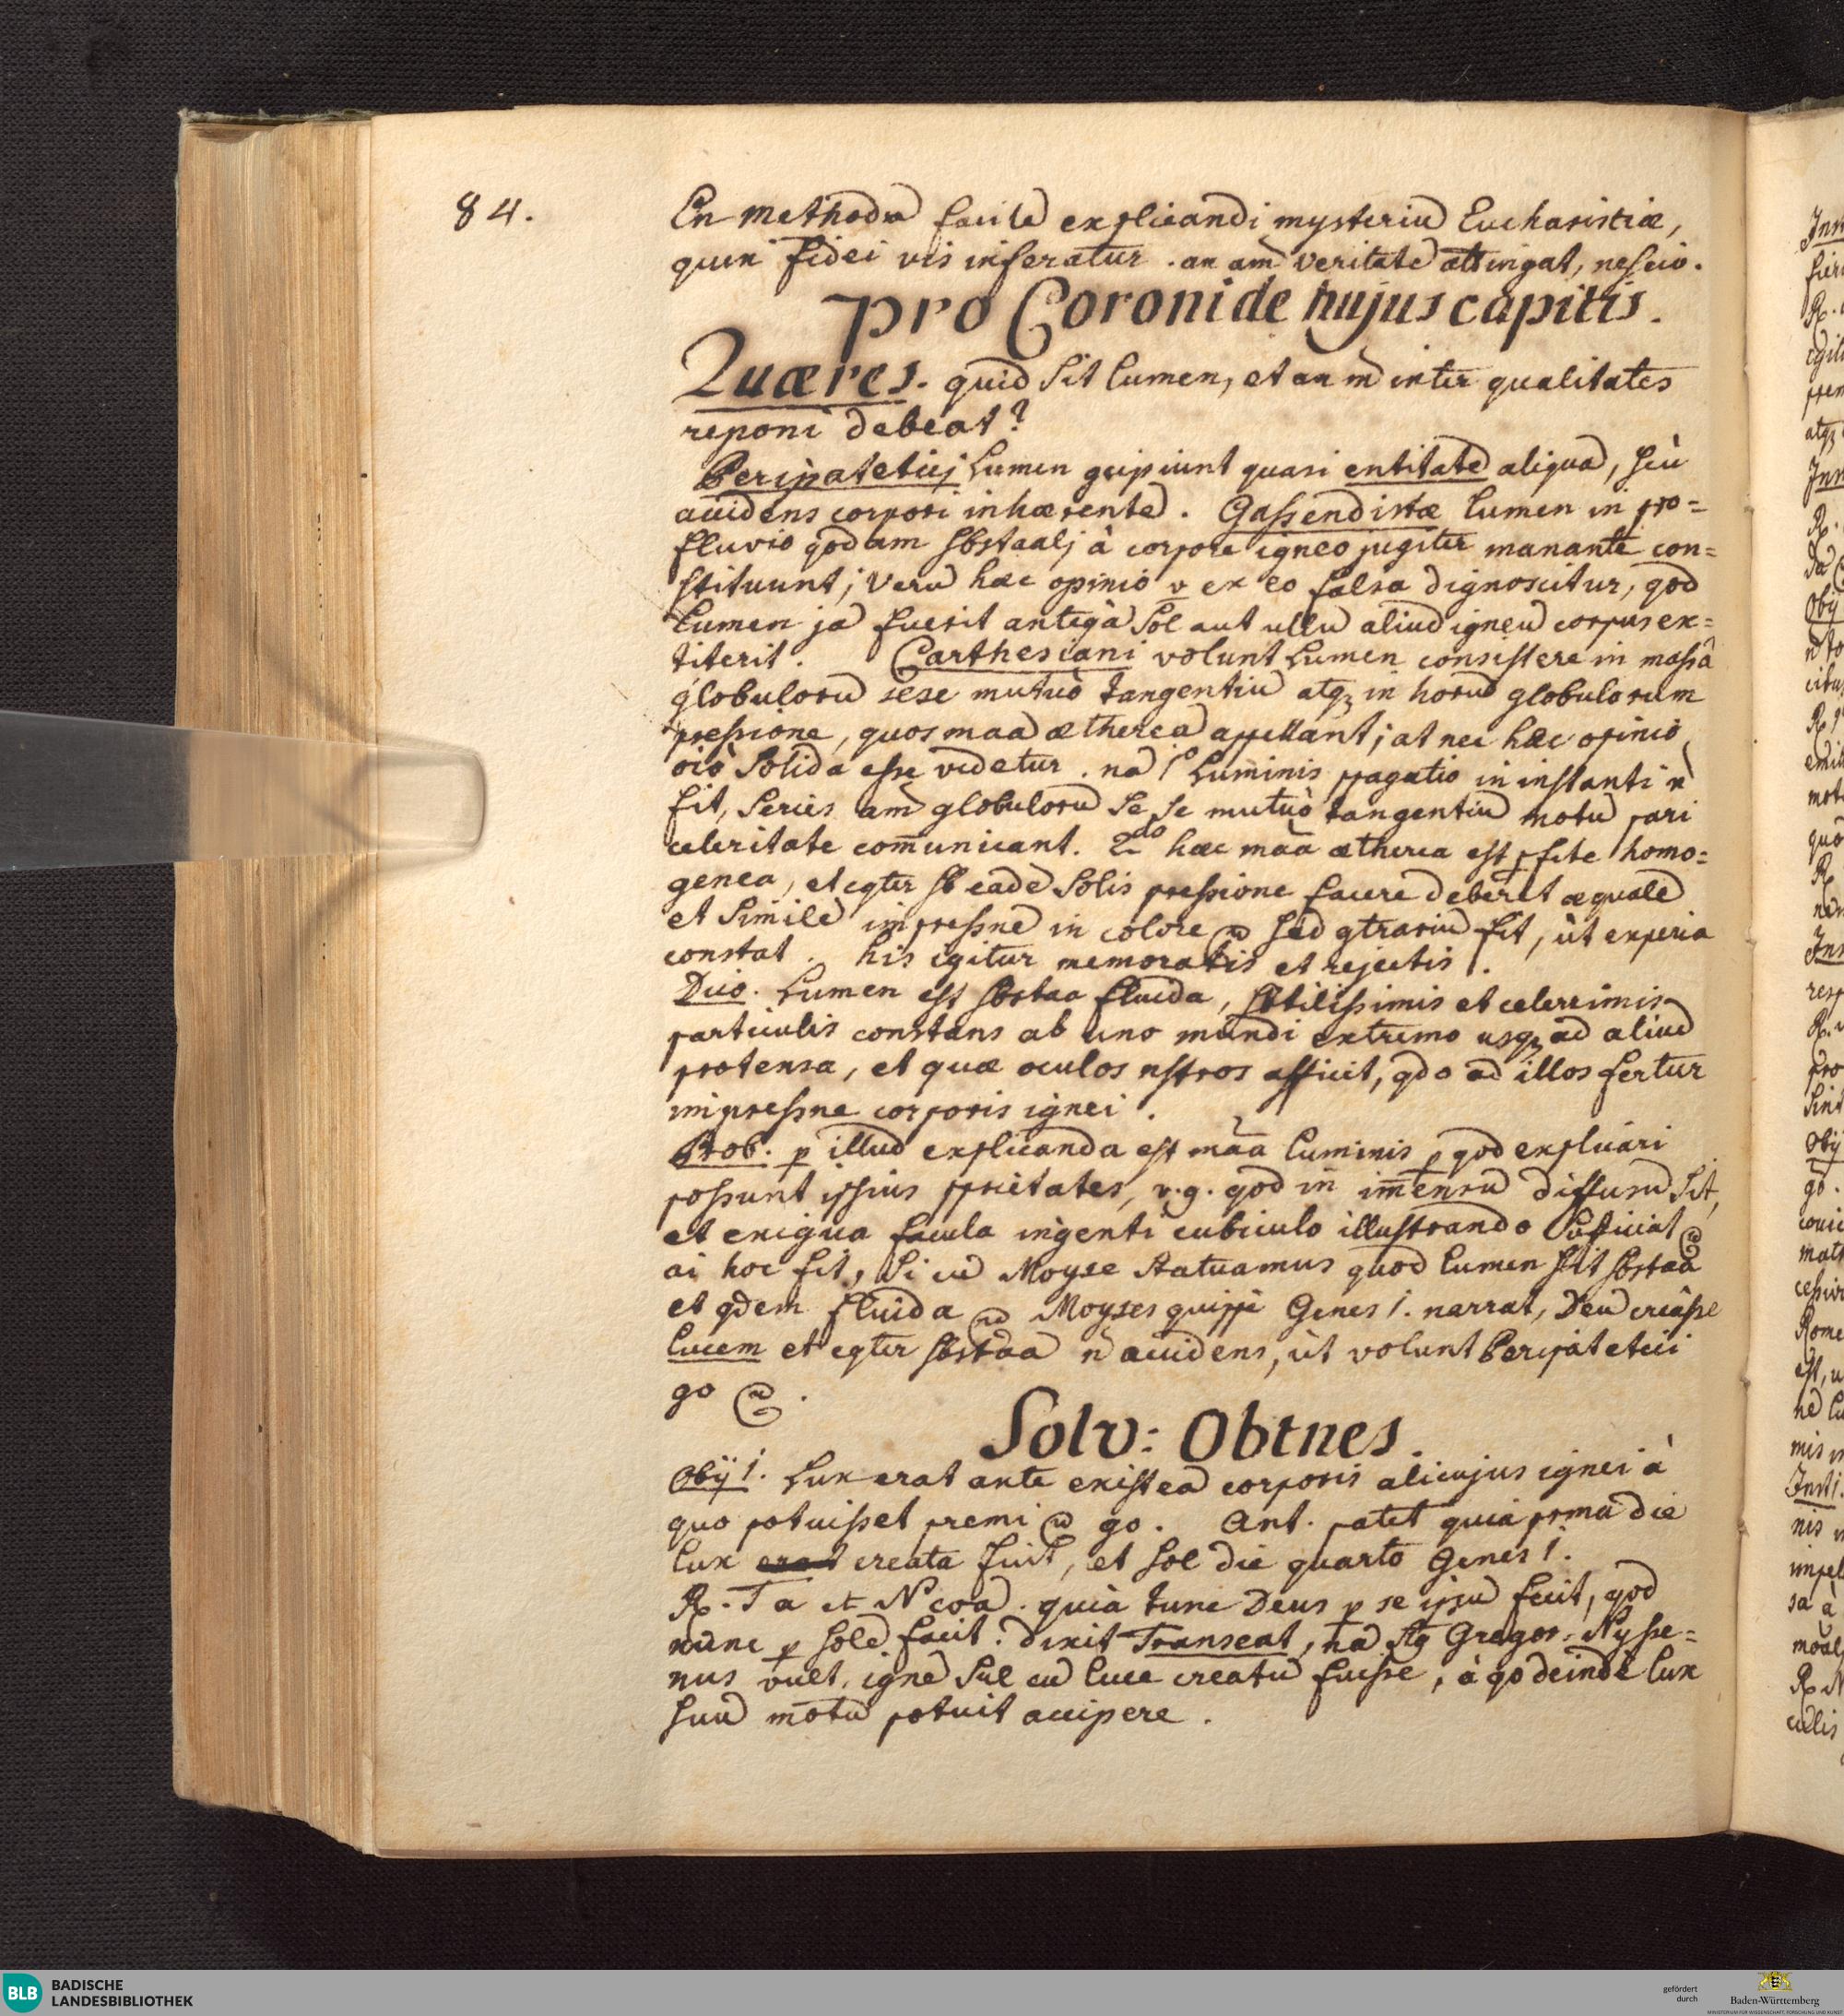 84.
En methodū facilē explicandi mysteriū Eucharistiæ,
quin fidei vis inferatur . an am̄ veritatē attingat, nescio.
pro Coronide hujus capitis.
Quæres. quid sit lumen, et an in̄ inter qualitates
reponi debeat?
Peripateticj Lumen gcipiunt quasi entitatē aliquā, seù
accidens corpori inhærentē. Gassendistæ lumen in pro=
fluvio qodam sbstaalj à corpore igneo jugiter manante con=
stituunt; Verū hæc opinio v ex eo falsa dignoscitur, qod
Lumen jā fuerit anteqà Sol aut ullū aliud igneū corpus ex=
titerit. Carthesiani volunt Lumen consistere in massâ
globulorū sese mutuò tangentiū atqz in horū globulorum
pressione, quos maā ætherea appellant; at nec hæc opinio
oiò Solida esse videtur. nā 1º Luminis ppagatio in instanti n̄
fit, Series am̄ globulorū Se se mutuò tangentiū motū pari
celeritate com̄unicant. 2do hæc maā ætherea est pfcte homo=
genea, et eqter sb eadē Solis pressione facere deberet æqualē
et Similē impressnē in colore sed gtrariū fit, ùt experia
constat. his igitur memoratis et rejectis.
Dico. Lumen est sbstaa fluida, sbtilissimis et celerrimis
particulis constans ab uno mundi extremo usqz ad aliud
protensa, et quæ oculos nstros afficit, qdo ad illos fertur
impressne corporis ignei.
Prob. p illud explicanda est māa Luminis p qod explicari
possunt ipsius pprietates, v.g. qod in im̄ensū diffusū sit,
et exigua facula ingenti cubiculo illustrando sufficiat
ai hoc fit, Si cū Moyse statuamus quod lumen sit sbstaa
et qdem fluida Moyses quippe Genes 1. narrat, Deū creâsse
lucem et eqter sbstāa n̄ accidens, ùt volunt Peripatetici
go .
Solv: Obtnes.
Obij 1. Lux erat ante existeā corporis alicujus ignei à
quo potuisset premi go. Ant. patet quia prmā die
lux erat creata fuit, et sol die quarto Genes 1.
R. Ta et N coā. quià tunc Deus p se ipsū fecit, qod
nunc p solē facit. dixit Transeat, nā Gregor. Nysse=
nus vult, ignē Sul cū luce creatū fuisse, à qo deindè lux
suū motū potuit accipere.
BLB BADISCHE
LANDESBIBLIOTHEK
gefördert
durch
Baden-Württemberg